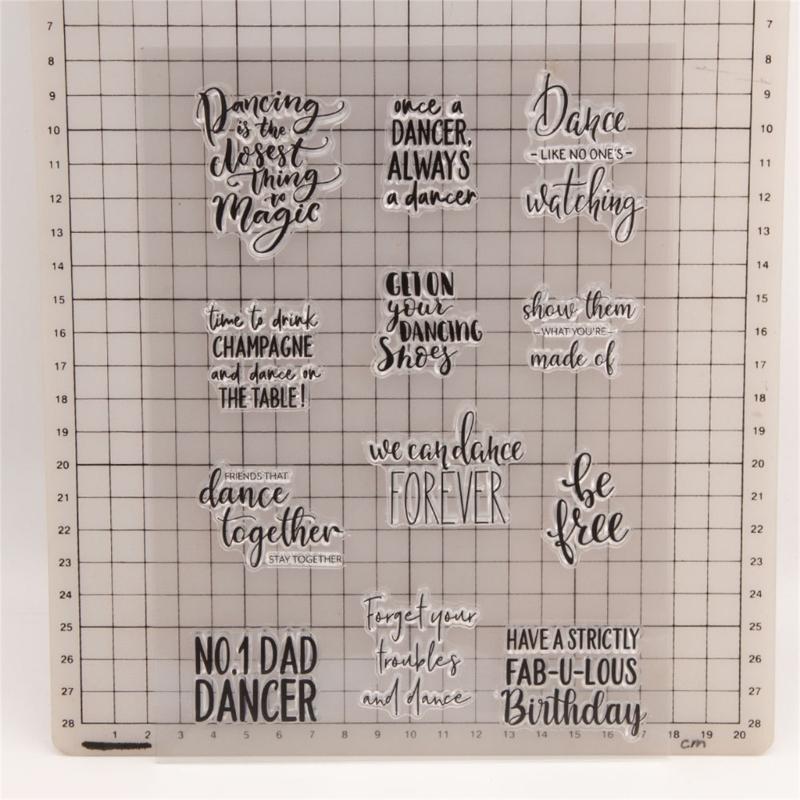 Dancing
is the
closest
thing
to
Magic
once a
DANCER,
ALWAYS
a dancer
Dance
- LIKE NO ONE'S -
watching
time to drink
CHAMPAGNE
and dance on
THE TABLE!
GET ON
your
DANCING
Shoes
show them
-WHAT YOU'RE-
made of
FRIENDS THAT
dance
together
STAY TOGETHER
we can dance
FOREVER
be
free
NO.1 DAD
DANCER
Forget your
troubles
and dance
HAVE A STRICTLY
FAB-U-LOUS
Birthday
7 7
8 8
9 9
10 10
11 11
12 12
13 13
14 14
15 15
16 16
17 17
18 18
19 19
20 20
21 21
22 22
23 23
24 24
25 25
26 26
27 27
28 28
1 2 3 4 5 6 7 8 9 10 11 12 13 14 15 16 17 18 19 20
cm